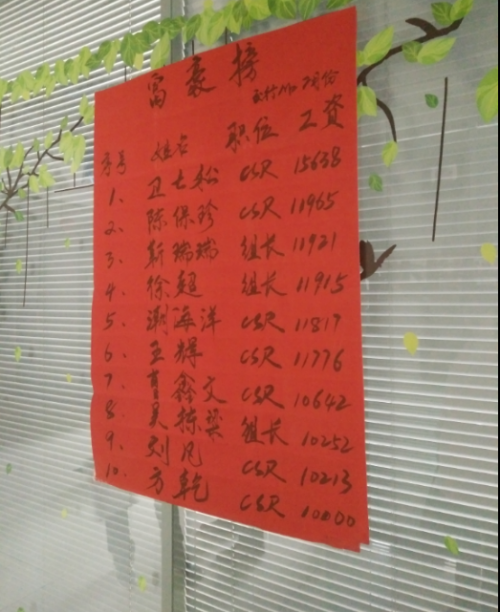 富豪榜
7月份
序号 姓名 职位 工资
1、卫七松 CSR 15638
2、陈保珍 CSR 11965
3、靳瑞瑞 组长 11921
4、徐超 组长 11915
5、海洋 CSR 11817
6、王辉 CSR 11776
7、鑫文 CSR 10642
8、吴栋梁 组长 10252
9、刘凡 CSR 10213
10、方乾 CSR 10000